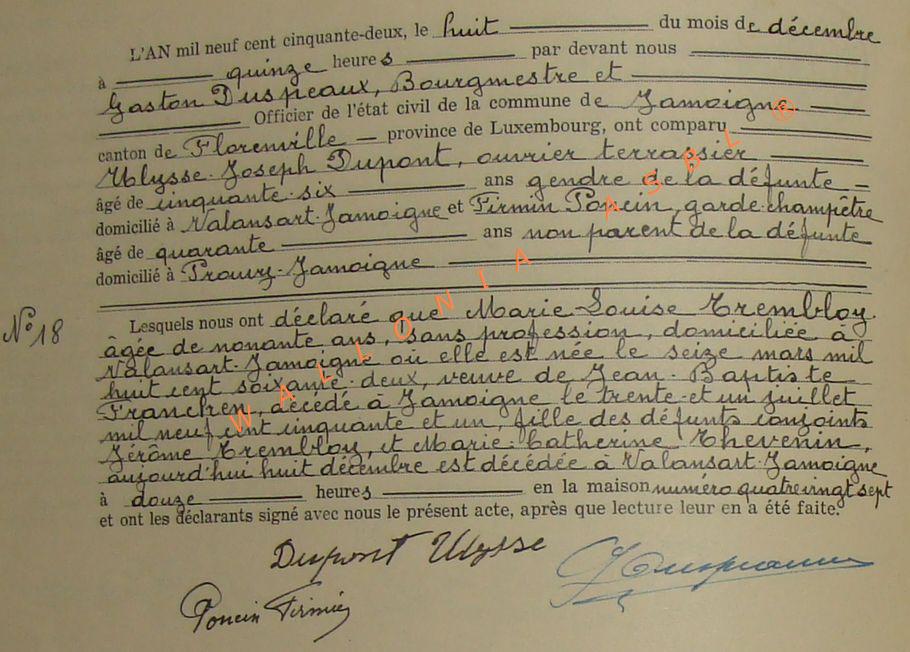 L'AN mil neuf cent cinquante-deux, le huit du mois de décembre
à quinze heures par devant nous
Gaston Duspeaux, Bourgmestre et
Officier de l'état civil de la commune de Jamoigne
canton de Florenville — province de Luxembourg, ont comparu
Ulysse-Joseph Dupont, ouvrier terrassier
âgé de cinquante-six ans gendre de la défunte —
domicilié à Valansart-Jamoigne et Firmin Poncin, garde-champêtre
âgé de quarante ans non parent de la défunte
domicilié à Prouvy-Jamoigne
Lesquels nous ont déclaré que Marie-Louise Trembloy,
N° 18
âgée de nonante ans, sans profession, domiciliée à
Valansart-Jamoigne où elle est née le seize mars mil
huit cent soixante-deux, veuve de Jean-Baptiste
Francken, décédé à Jamoigne le trente-et-un juillet
mil neuf cent cinquante et un, fille des défunts conjoints
Jérôme Trembloy, et Marie-Catherine Thevenin,
aujourd'hui huit décembre est décédée à Valansart-Jamoigne
à douze heures en la maison numéro quatrevingt sept
et ont les déclarants signé avec nous le présent acte, après que lecture leur en a été faite.
Dupont Ulysse
Poncin Firmin
WALLONIA ASBL ®